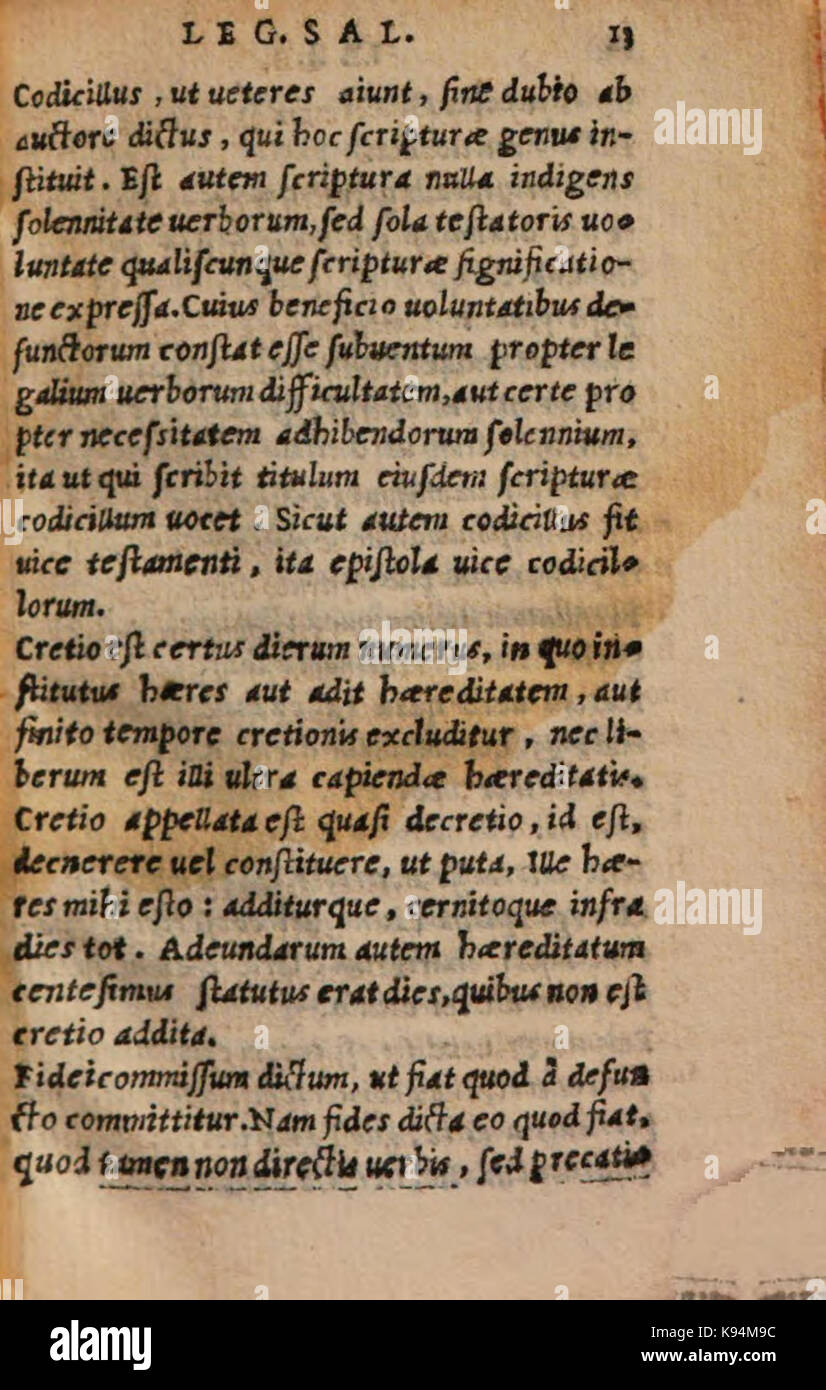 LEG. SAL. 13
Codicillus, ut ueteres aiunt, ſine dubio ab
auctore dictus, qui hoc ſcripturæ genus in-
ſtituit. Eſt autem ſcriptura nulla indigens
ſolennitate uerborum, ſed ſola teſtatoris uo-
luntate qualiſcunque ſcripturæ ſignificatio-
ne expreſſa. Cuius beneficio uoluntatibus de-
functorum conſtat eſſe ſubuentum propter le
galium uerborum difficultatem, aut certe pro
pter neceſsitatem adhibendorum ſolennium,
ita ut qui ſcribit titulum eiuſdem ſcripturæ
codicillum uocet. Sicut autem codicillus fit
uice teſtamenti, ita epiſtola uice codicil-
lorum.
Cretio eſt certus dierum numerus, in quo in-
ſtitutus hæres aut adit hæreditatem, aut
finito tempore cretionis excluditur, nec li-
berum eſt illi ultra capiendæ hæreditatis.
Cretio appellata eſt quaſi decretio, id eſt,
decnerere uel conſtituere, ut puta, Ille hæ-
res mihi eſto: additurque, cernitoque infra
dies tot. Adeundarum autem hæreditatum
centeſimus ſtatutus erat dies, quibus non eſt
cretio addita.
Fideicommiſſum dictum, ut fiat quod à defun
cto committitur. Nam fides dicta eo quod fiat,
quod tamen non directis uerbis, ſed precatiu
alamy
alamy
a
a
a
a
alamy
Image ID: K94M9C
www.alamy.com